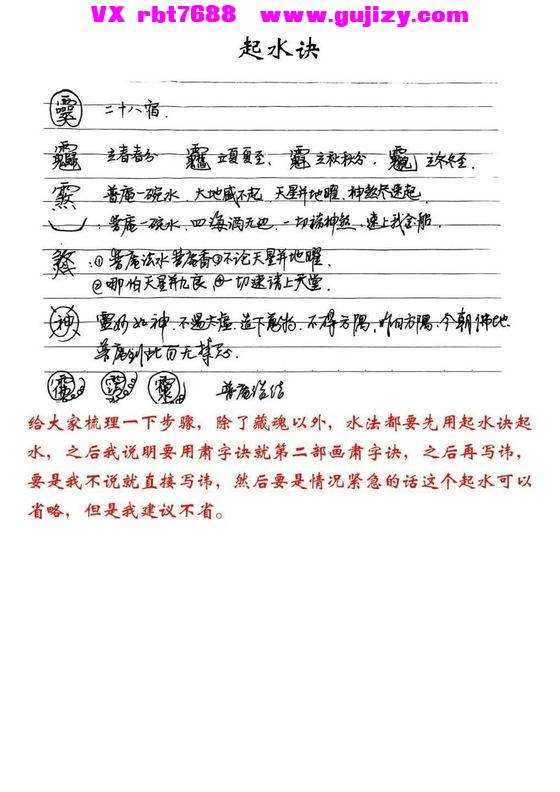 VX rbt7688 www.gujizy.com
起水诀
二十八宿.
立春春分 立夏夏至、 立秋秋分、 立冬冬至.
普庵一碗水 大地感不起、天星并地曜、神煞尽速起
普庵一碗水 四海满无边 一切神煞 速上我金船
① 普庵法水 ③不论天星并地曜、
②哪怕天星并九良 ④一切速请上天堂
神 灵妙如神、不 方隅、昨日方隅、今朝佛地
普庵到此百无禁忌
普庵
给大家梳理一下步骤，除了藏魂以外，水法都要先用起水诀起
水，之后我说明要用肃字诀就第二部画肃字诀，之后再写讳，
要是我不说就直接写讳，然后要是情况紧急的话这个起水可以
省略，但是我建议不省。